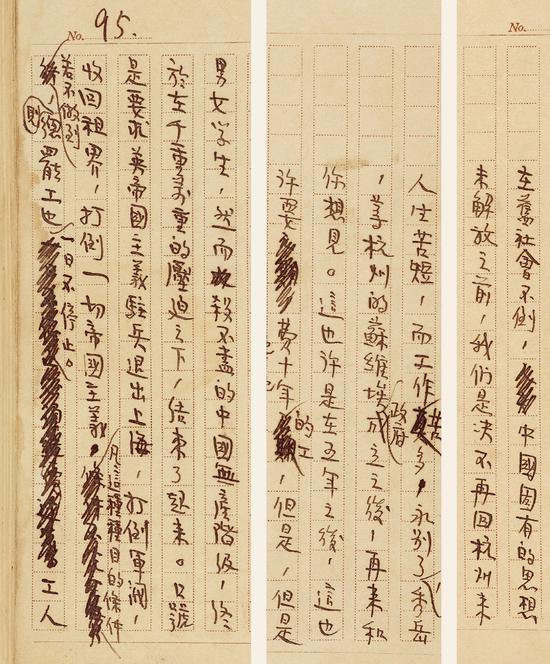 No.
在舊社會不倒，中國固有的思想
未解放之前，我們是決不再回杭州來
人生苦短，而工作苦多，永別了岳
，等杭州的蘇維埃政府成立之後，再來和
你想見。這也許是在五年之後，這也
許要費十年的工，但是，但是
No. 95.
男女学生，然而殺不盡的中國無產階級，终
於在千重萬重的壓迫之下，结束了起来。口號
是要求英帝國主義駐兵退出上海，打倒軍阀，
收回租界，打倒一切帝國主義。凡這種種目的條件
若不做到，則總罷工也一日不停止。工人